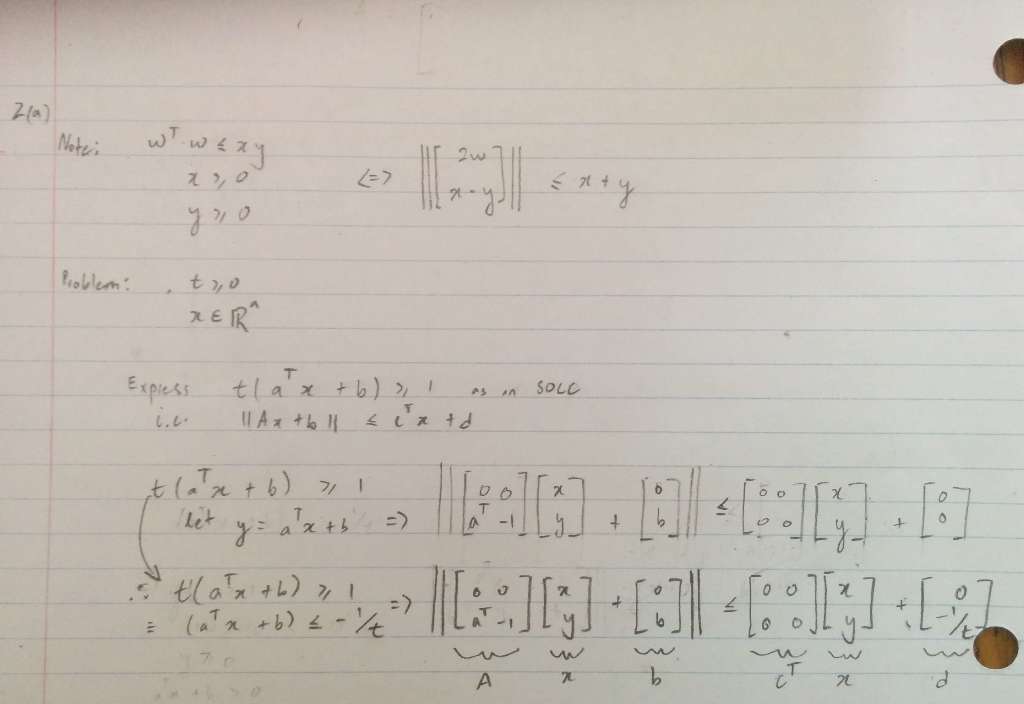 2(a)
Note: wᵀ·w ≤ xy
x ≥ 0 <=> ‖[2w; x - y]‖ ≤ x + y
y ≥ 0
Problem: t ≥ 0
x ∈ ℝⁿ
Express t(aᵀx + b) ≥ 1 as an SOCC
i.e. ‖Ax + b‖ ≤ cᵀx + d
t(aᵀx + b) ≥ 1
let y = aᵀx + b => ‖[0 0; aᵀ -1][x; y] + [0; b]‖ ≤ [0 0; 0 0][x; y] + [0; 0]
∴ t(aᵀx + b) ≥ 1 => ‖[0 0; aᵀ -1][x; y] + [0; b]‖ ≤ [0 0; 0 0][x; y] + [0; -1/t]
≡ (aᵀx + b) ≤ -1/t
y ≥ 0
A x b cᵀ x d